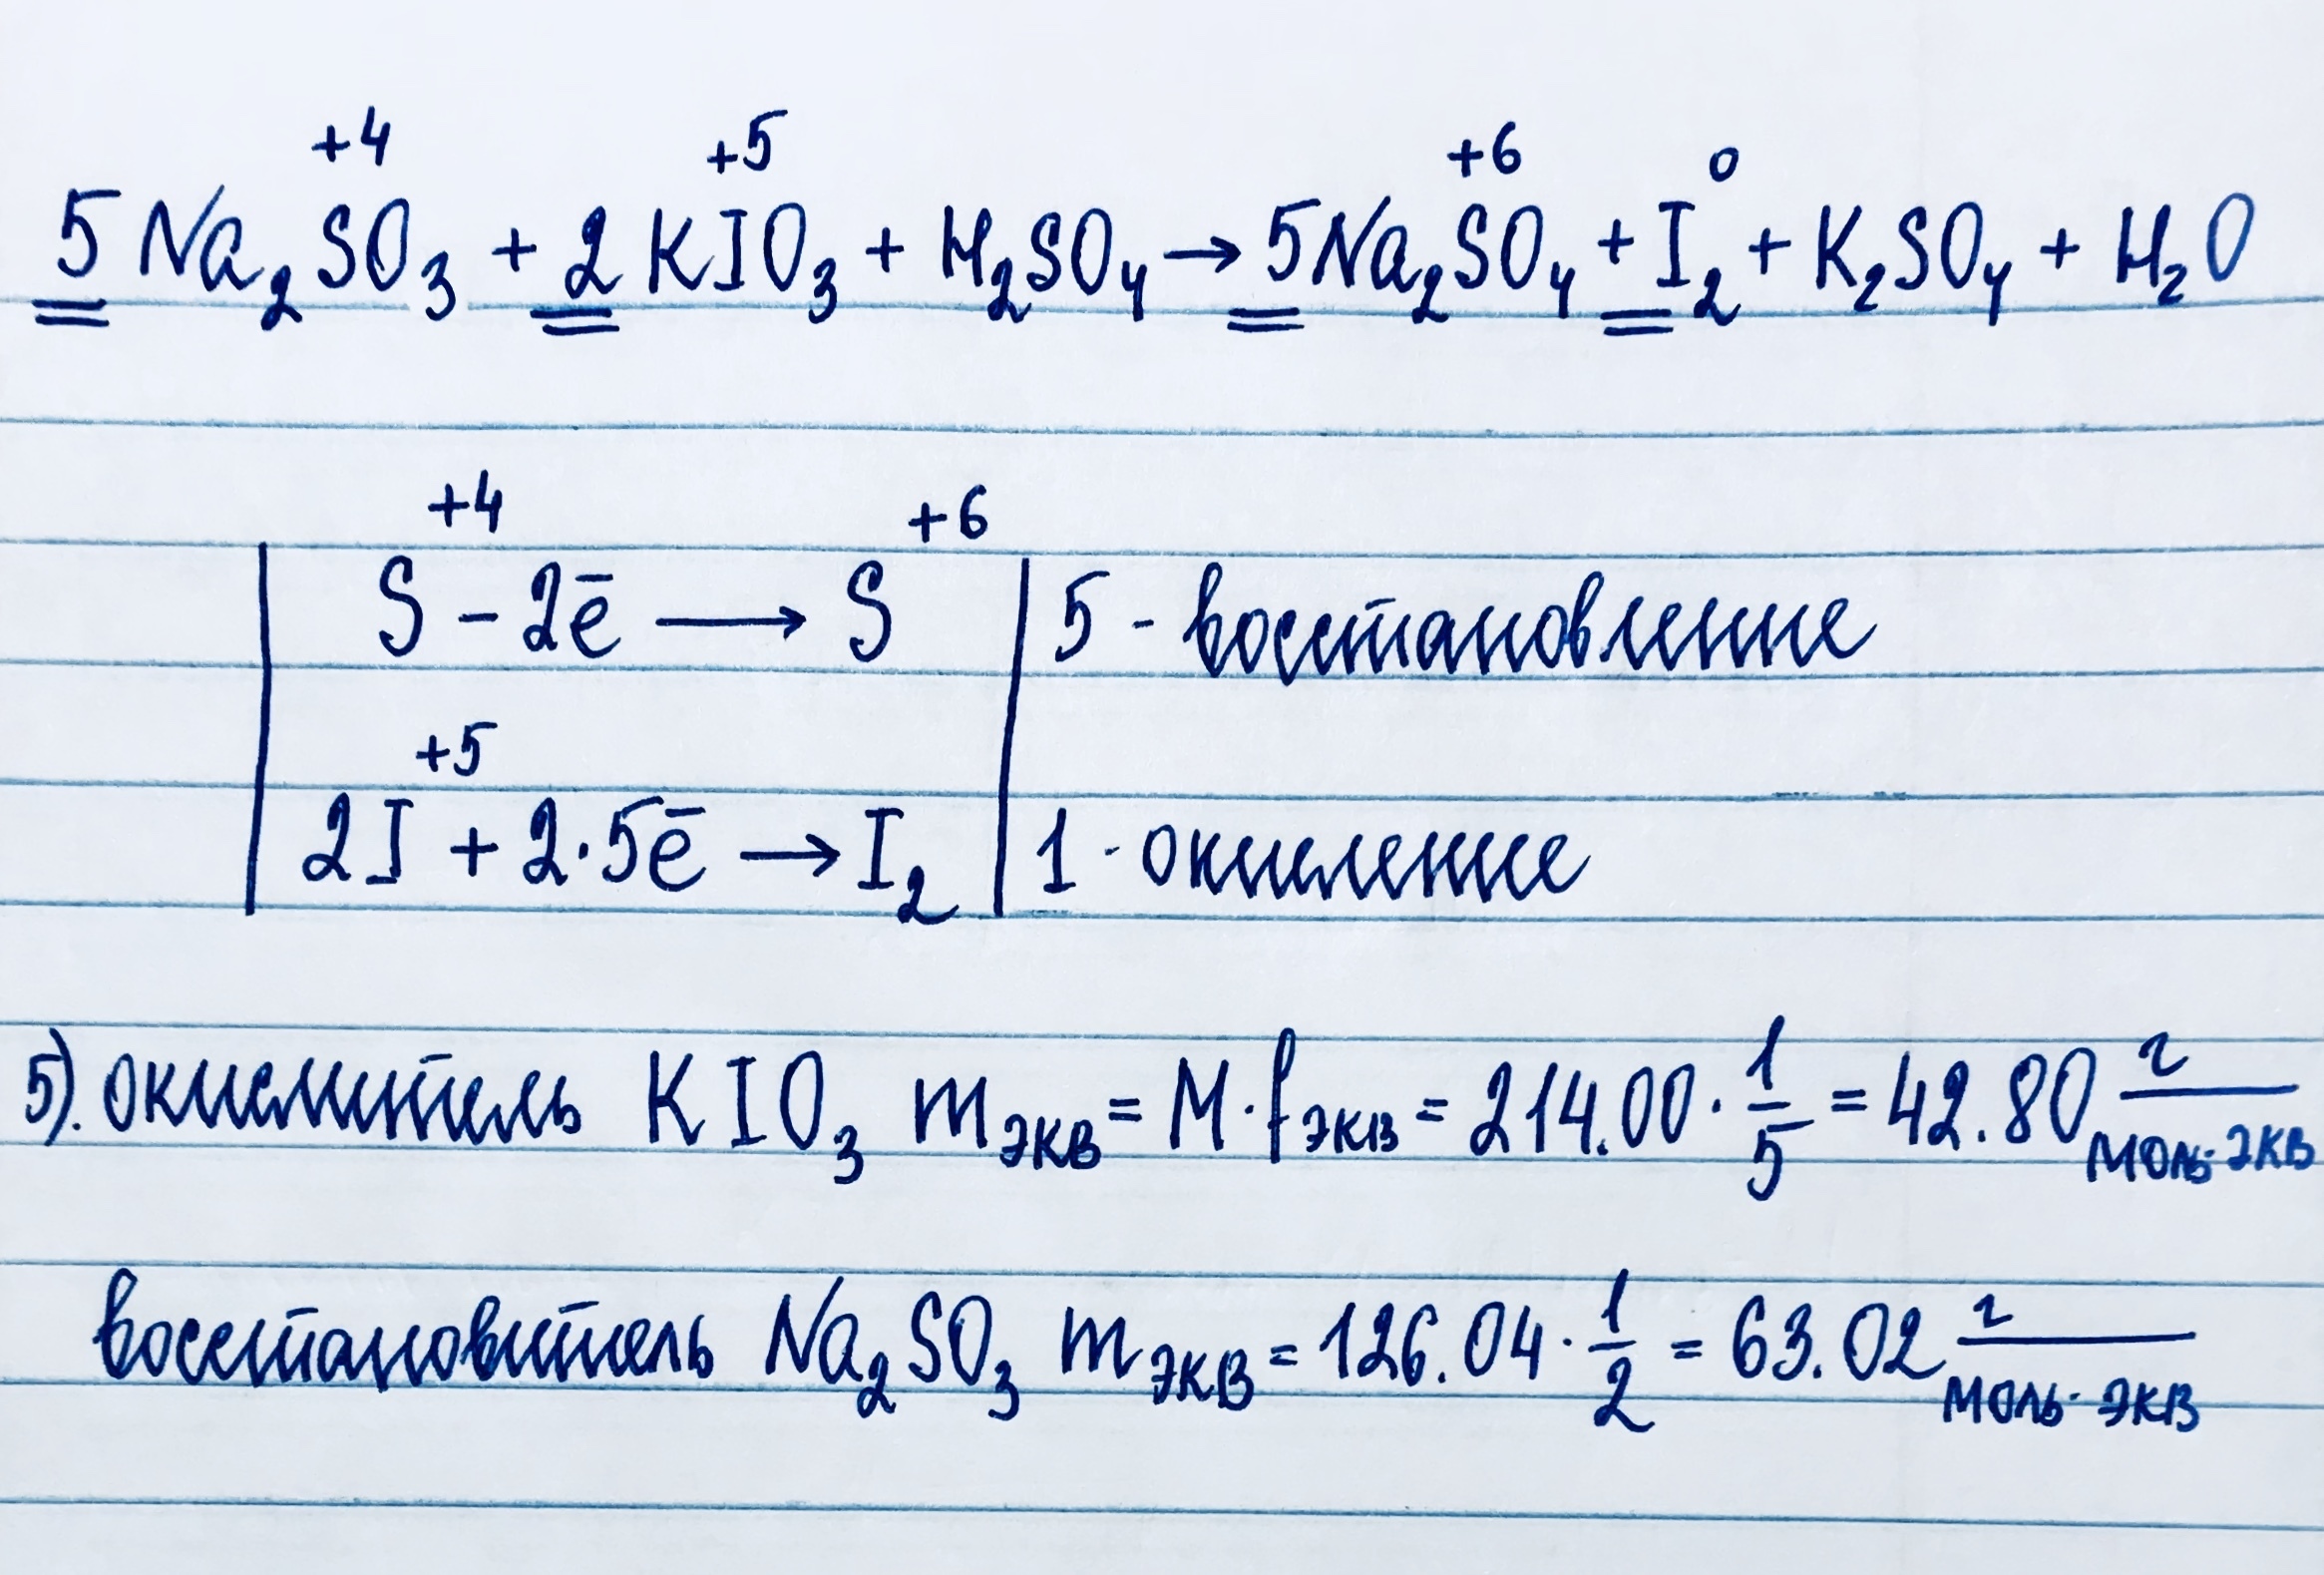 +4 +5 +6 0
5 Na₂SO₃ + 2 KIO₃ + H₂SO₄ → 5Na₂SO₄ + I₂ + K₂SO₄ + H₂O
+4 +6
S - 2ē → S | 5 - восстановление
+5
2I + 2·5ē → I₂ | 1 - окисление
5). окислитель KIO₃ mэкв = M·fэкв = 214.00 · 1/5 = 42.80 г/моль-экв
восстановитель Na₂SO₃ mэкв = 126.04 · 1/2 = 63.02 г/моль-экв